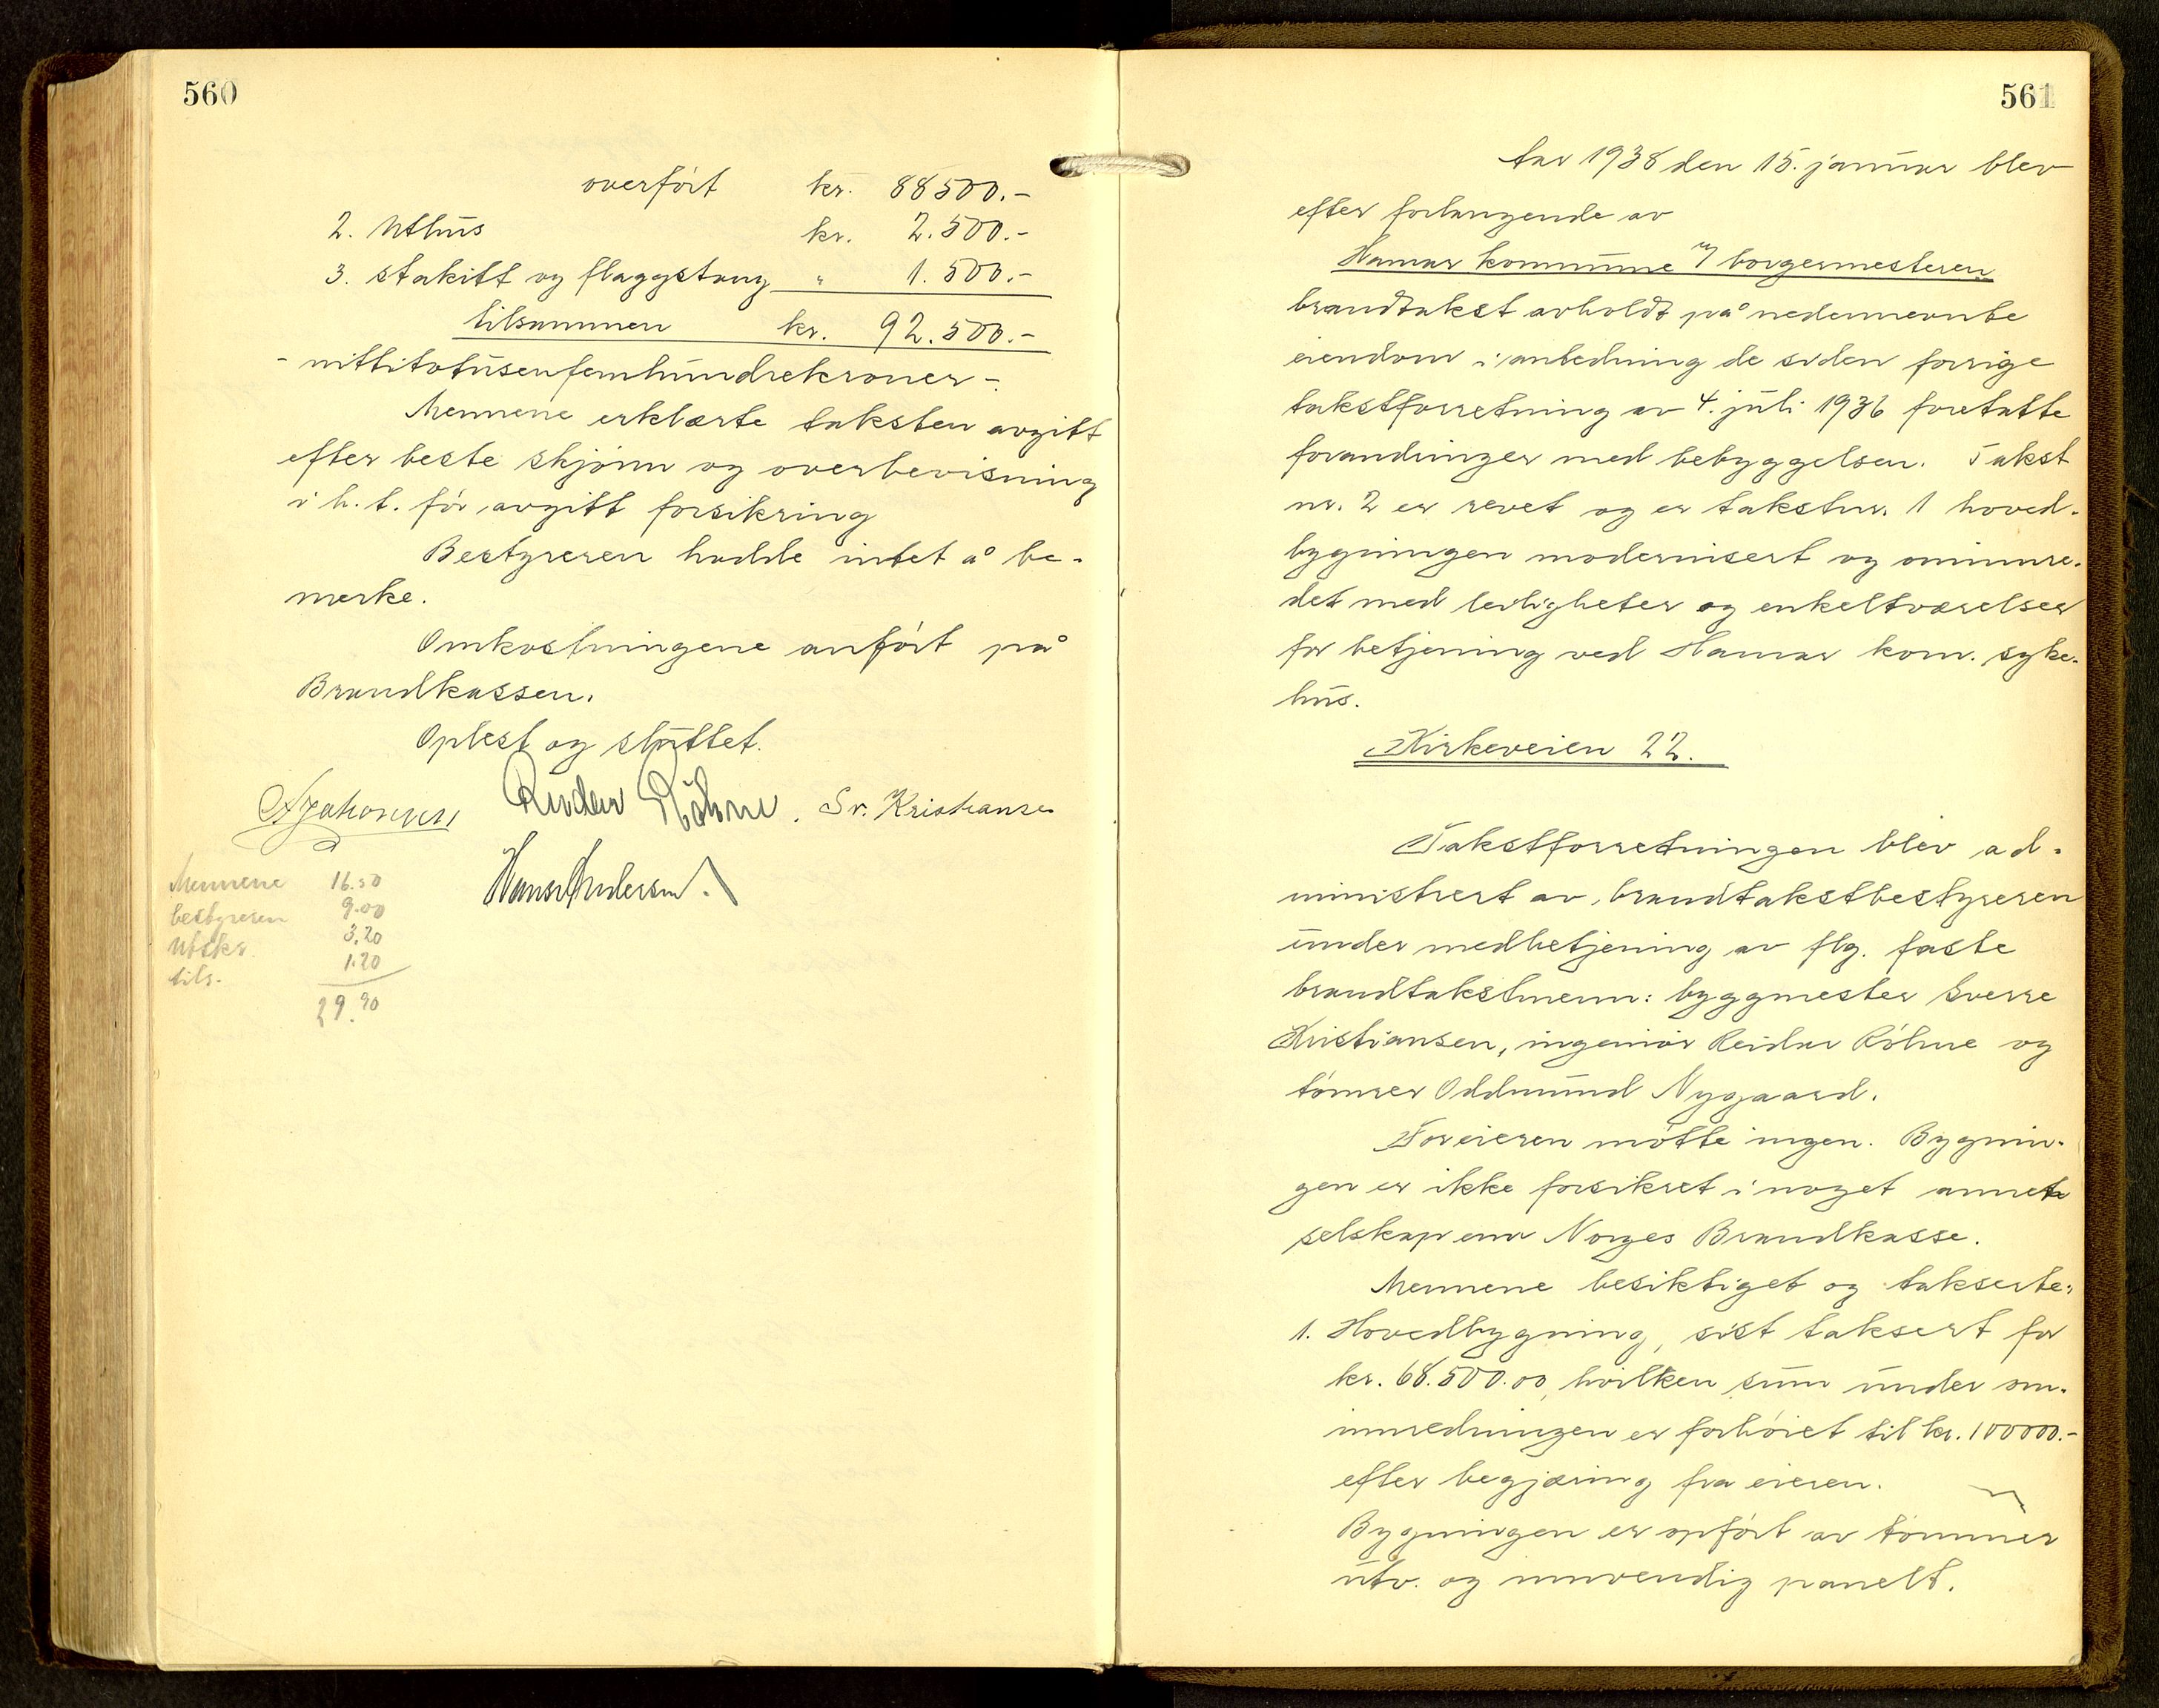 560
overført kr. 88500.-
2. Uthus kr. 2.500.-
3. Stakitt og flaggstang " 1.500.-
tilsammen kr. 92.500.-
- nittitotusenfemhundrekroner -
Mennene erklærte taksten avgitt
efter beste skjønn og overbevisning
i h. t. før avgitt forsikring
Bestyreren hadde intet å be-
merke.
Omkostningene anført på
Brandkassen.
Oplest og sluttet.
Reidar Røhne. Sv. Kristiansen
Hans Andersen.
Mennene 16.50
bestyreren 9.00
Utskr. 3,20
tils. 1.20
29.90
561
År 1938 den 15. januar blev
efter forlangende av
Hamar kommune v/ borgermesteren
brandtakst avholdt på nedennevnte
eiendom i anledning de siden forrige
takstforretning av 4. juli 1936 foretatte
forandringer med bebyggelsen. Takst
nr. 2 er revet og er takstnr. 1 hoved-
bygningen modernisert og ominnre-
det med leiligheter og enkeltværelser
for betjening ved Hamar kom. syke-
hus.
Kirkeveien 22.
Takstforretningen blev ad-
ministrert av brandtakstbestyreren
under medbetjening av flg. faste
brandtakstmenn: byggmester Sverre
Kristiansen, ingeniør Reidar Røhne og
tømrer Oddmund Nygaard.
For eieren møtte ingen. Bygnin-
gen er ikke forsikret i noget annet
selskap enn Norges Brandkasse.
Mennene besiktiget og takserte:
1. Hovedbygning, sist taksert for
kr. 68.500.00, hvilken sum under om-
innredningen er forhøiet til kr. 100000.-
efter begjæring fra eieren.
Bygningen er opført av tømmer
utv. og innvendig panelt.